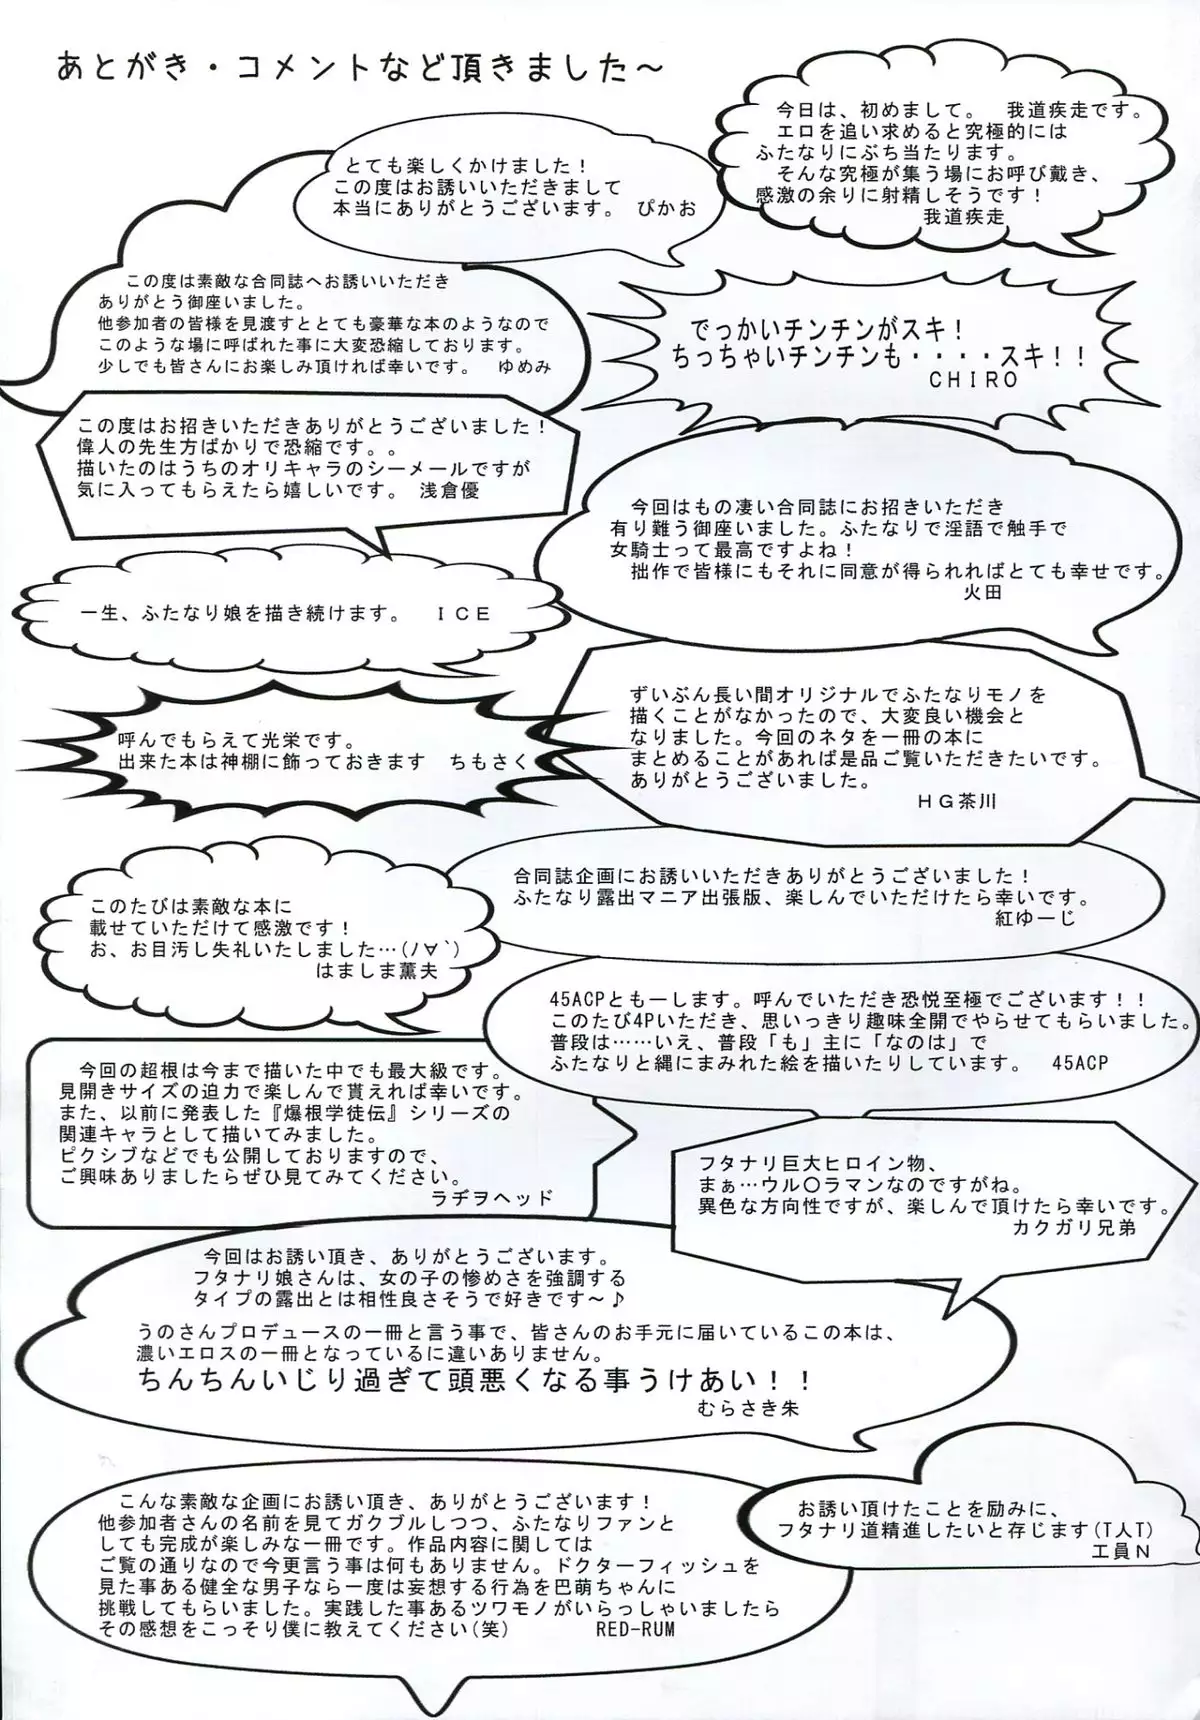 あとがき・コメントなど頂きました～
今日は、初めまして。　我道疾走です。
エロを追い求めると究極的には
ふたなりにぶち当たります。
そんな究極が集う場にお呼び戴き、
感激の余りに射精しそうです！
我道疾走
とても楽しくかけました！
この度はお誘いいただきまして
本当にありがとうございます。　ぴかお
この度は素敵な合同誌へお誘いいただき
ありがとう御座いました。
他参加者の皆様を見渡すととても豪華な本のようなので
このような場に呼ばれた事に大変恐縮しております。
少しでも皆さんにお楽しみ頂ければ幸いです。　ゆめみ
でっかいチンチンがスキ！
ちっちゃいチンチンも・・・・スキ！！
ＣＨＩＲＯ
この度はお招きいただきありがとうございました！
偉人の先生方ばかりで恐縮です。。
描いたのはうちのオリキャラのシーメールですが
気に入ってもらえたら嬉しいです。　浅倉優
今回はもの凄い合同誌にお招きいただき
有り難う御座いました。ふたなりで淫語で触手で
女騎士って最高ですよね！
拙作で皆様にもそれに同意が得られればとても幸せです。
火田
一生、ふたなり娘を描き続けます。　ＩＣＥ
ずいぶん長い間オリジナルでふたなりモノを
描くことがなかったので、大変良い機会と
なりました。今回のネタを一冊の本に
まとめることがあれば是品ご覧いただきたいです。
ありがとうございました。
ＨＧ茶川
呼んでもらえて光栄です。
出来た本は神棚に飾っておきます　ちもさく
合同誌企画にお誘いいただきありがとうございました！
ふたなり露出マニア出張版、楽しんでいただけたら幸いです。
紅ゆーじ
このたびは素敵な本に
載せていただけて感激です！
お、お目汚し失礼いたしました…(ﾉ∀`)
はましま薫夫
45ACPともーします。呼んでいただき恐悦至極でございます！！
このたび4Pいただき、思いっきり趣味全開でやらせてもらいました。
普段は……いえ、普段「も」主に「なのは」で
ふたなりと縄にまみれた絵を描いたりしています。　45ACP
今回の超根は今まで描いた中でも最大級です。
見開きサイズの迫力で楽しんで貰えれば幸いです。
また、以前に発表した『爆根学徒伝』シリーズの
関連キャラとして描いてみました。
ピクシブなどでも公開しておりますので、
ご興味ありましたらぜひ見てみてください。
ラヂヲヘッド
フタナリ巨大ヒロイン物、
まぁ…ウル〇ラマンなのですがね。
異色な方向性ですが、楽しんで頂けたら幸いです。
カクガリ兄弟
今回はお誘い頂き、ありがとうございます。
フタナリ娘さんは、女の子の惨めさを強調する
タイプの露出とは相性良さそうで好きです～♪
うのさんプロデュースの一冊と言う事で、皆さんのお手元に届いているこの本は、
濃いエロスの一冊となっているに違いありません。
ちんちんいじり過ぎて頭悪くなる事うけあい！！
むらさき朱
こんな素敵な企画にお誘い頂き、ありがとうございます！
他参加者さんの名前を見てガクブルしつつ、ふたなりファンと
しても完成が楽しみな一冊です。作品内容に関しては
ご覧の通りなので今更言う事は何もありません。ドクターフィッシュを
見た事ある健全な男子なら一度は妄想する行為を巴萌ちゃんに
挑戦してもらいました。実践した事あるツワモノがいらっしゃいましたら
その感想をこっそり僕に教えてください(笑)　RED-RUM
お誘い頂けたことを励みに、
フタナリ道精進したいと存じます(T人T)
工員Ｎ